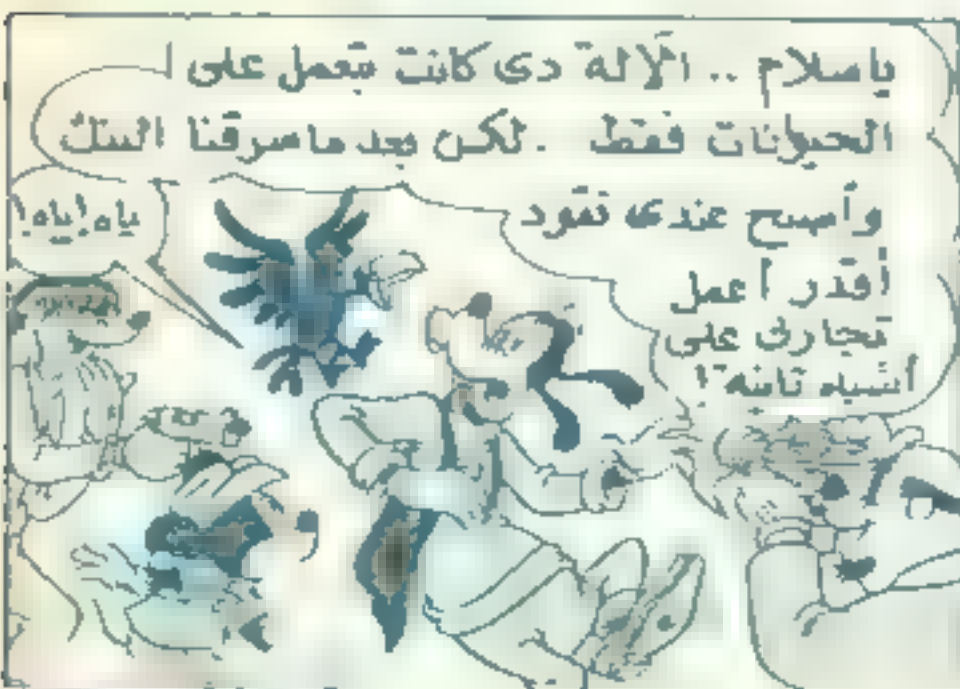 ياسلام .. الآلة دى كانت بتعمل على
الحيوانات فقط . لكن بعد ماسرقنا البنك
وأصبح عندى نقود
أقدر أعمل
تجاربى على
أشياء تانية !
ياه ! ياه !